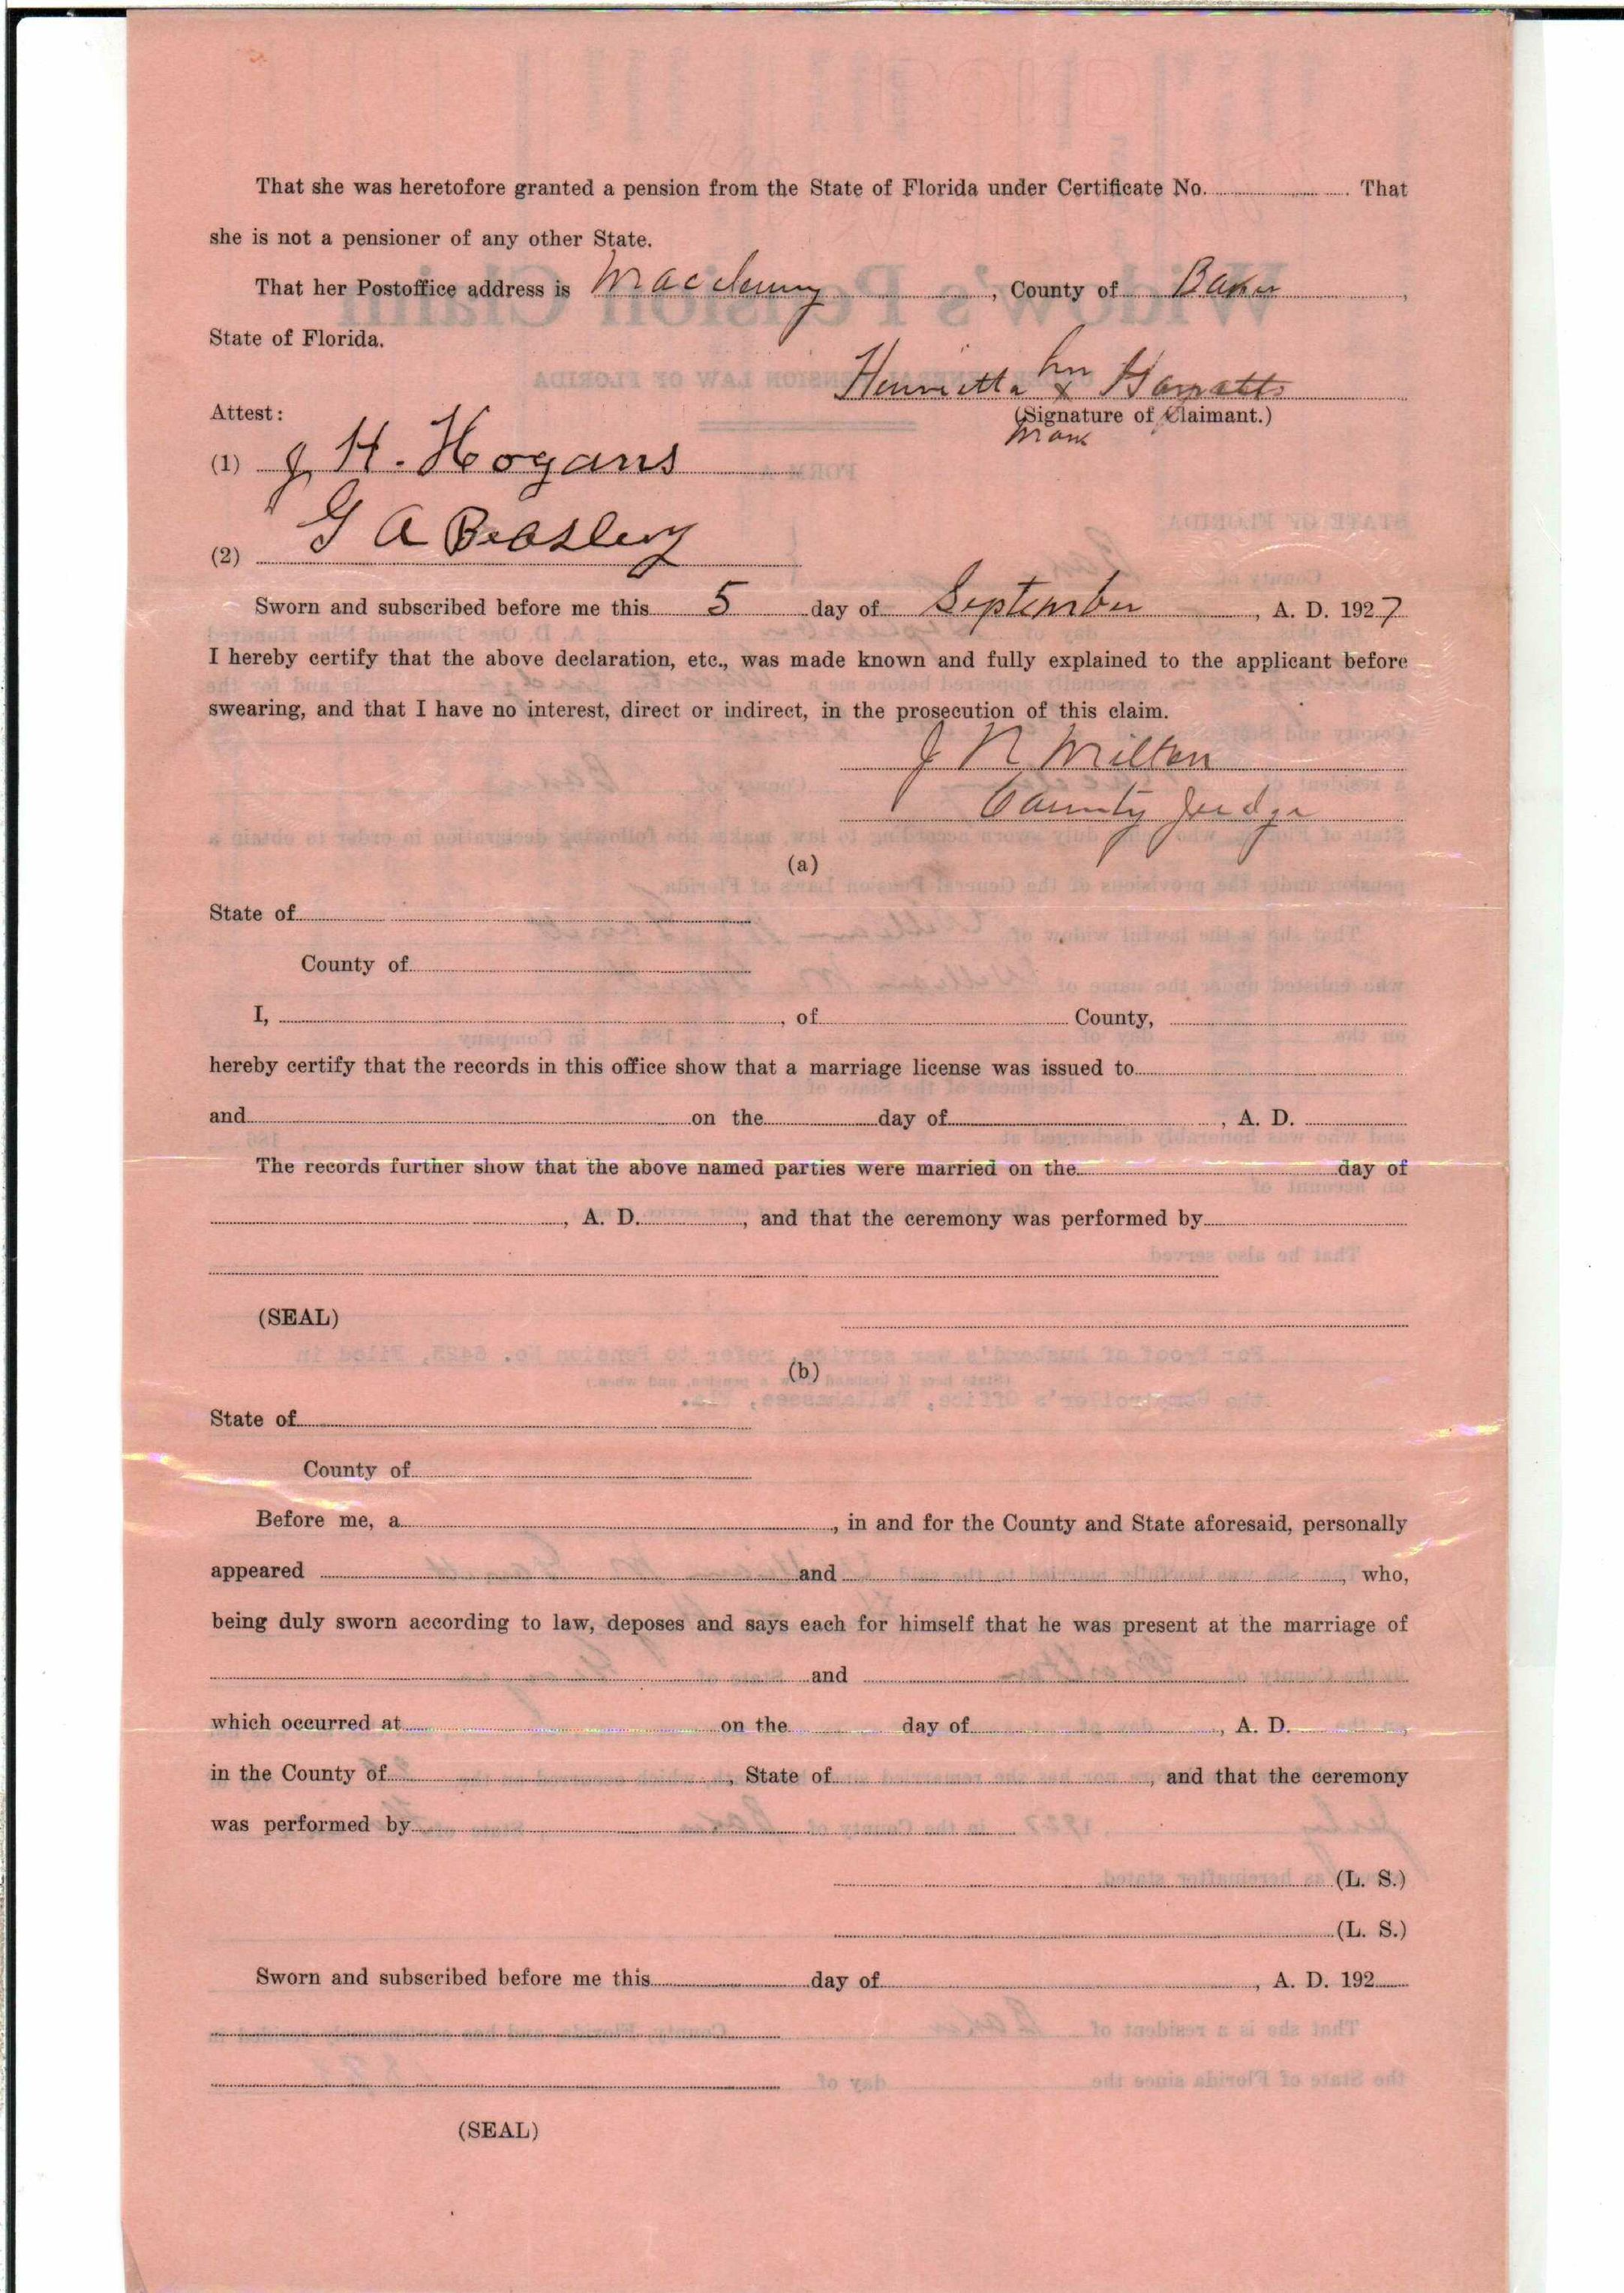 That she was heretofore granted a pension from the State of Florida under Certificate No. . That
she is not a pensioner of any other State.
That her Postoffice address is Macclenny, County of Baker,
State of Florida.
Henrietta her x
Attest: (Signature of Claimant.)
mark
(1) J. H. Hogans
(2) G A Beasley
Sworn and subscribed before me this 5 day of September, A. D. 1927
I hereby certify that the above declaration, etc., was made known and fully explained to the applicant before
swearing, and that I have no interest, direct or indirect, in the prosecution of this claim.
J N Milton
County Judge
(a)
State of
County of
I, , of County,
hereby certify that the records in this office show that a marriage license was issued to
and on the day of , A. D.
The records further show that the above named parties were married on the day of
, A. D. , and that the ceremony was performed by
(SEAL)
(b)
State of
County of
Before me, a , in and for the County and State aforesaid, personally
appeared and , who,
being duly sworn according to law, deposes and says each for himself that he was present at the marriage of
and
which occurred at on the day of , A. D.
in the County of , State of , and that the ceremony
was performed by
(L. S.)
(L. S.)
Sworn and subscribed before me this day of , A. D. 192
(SEAL)